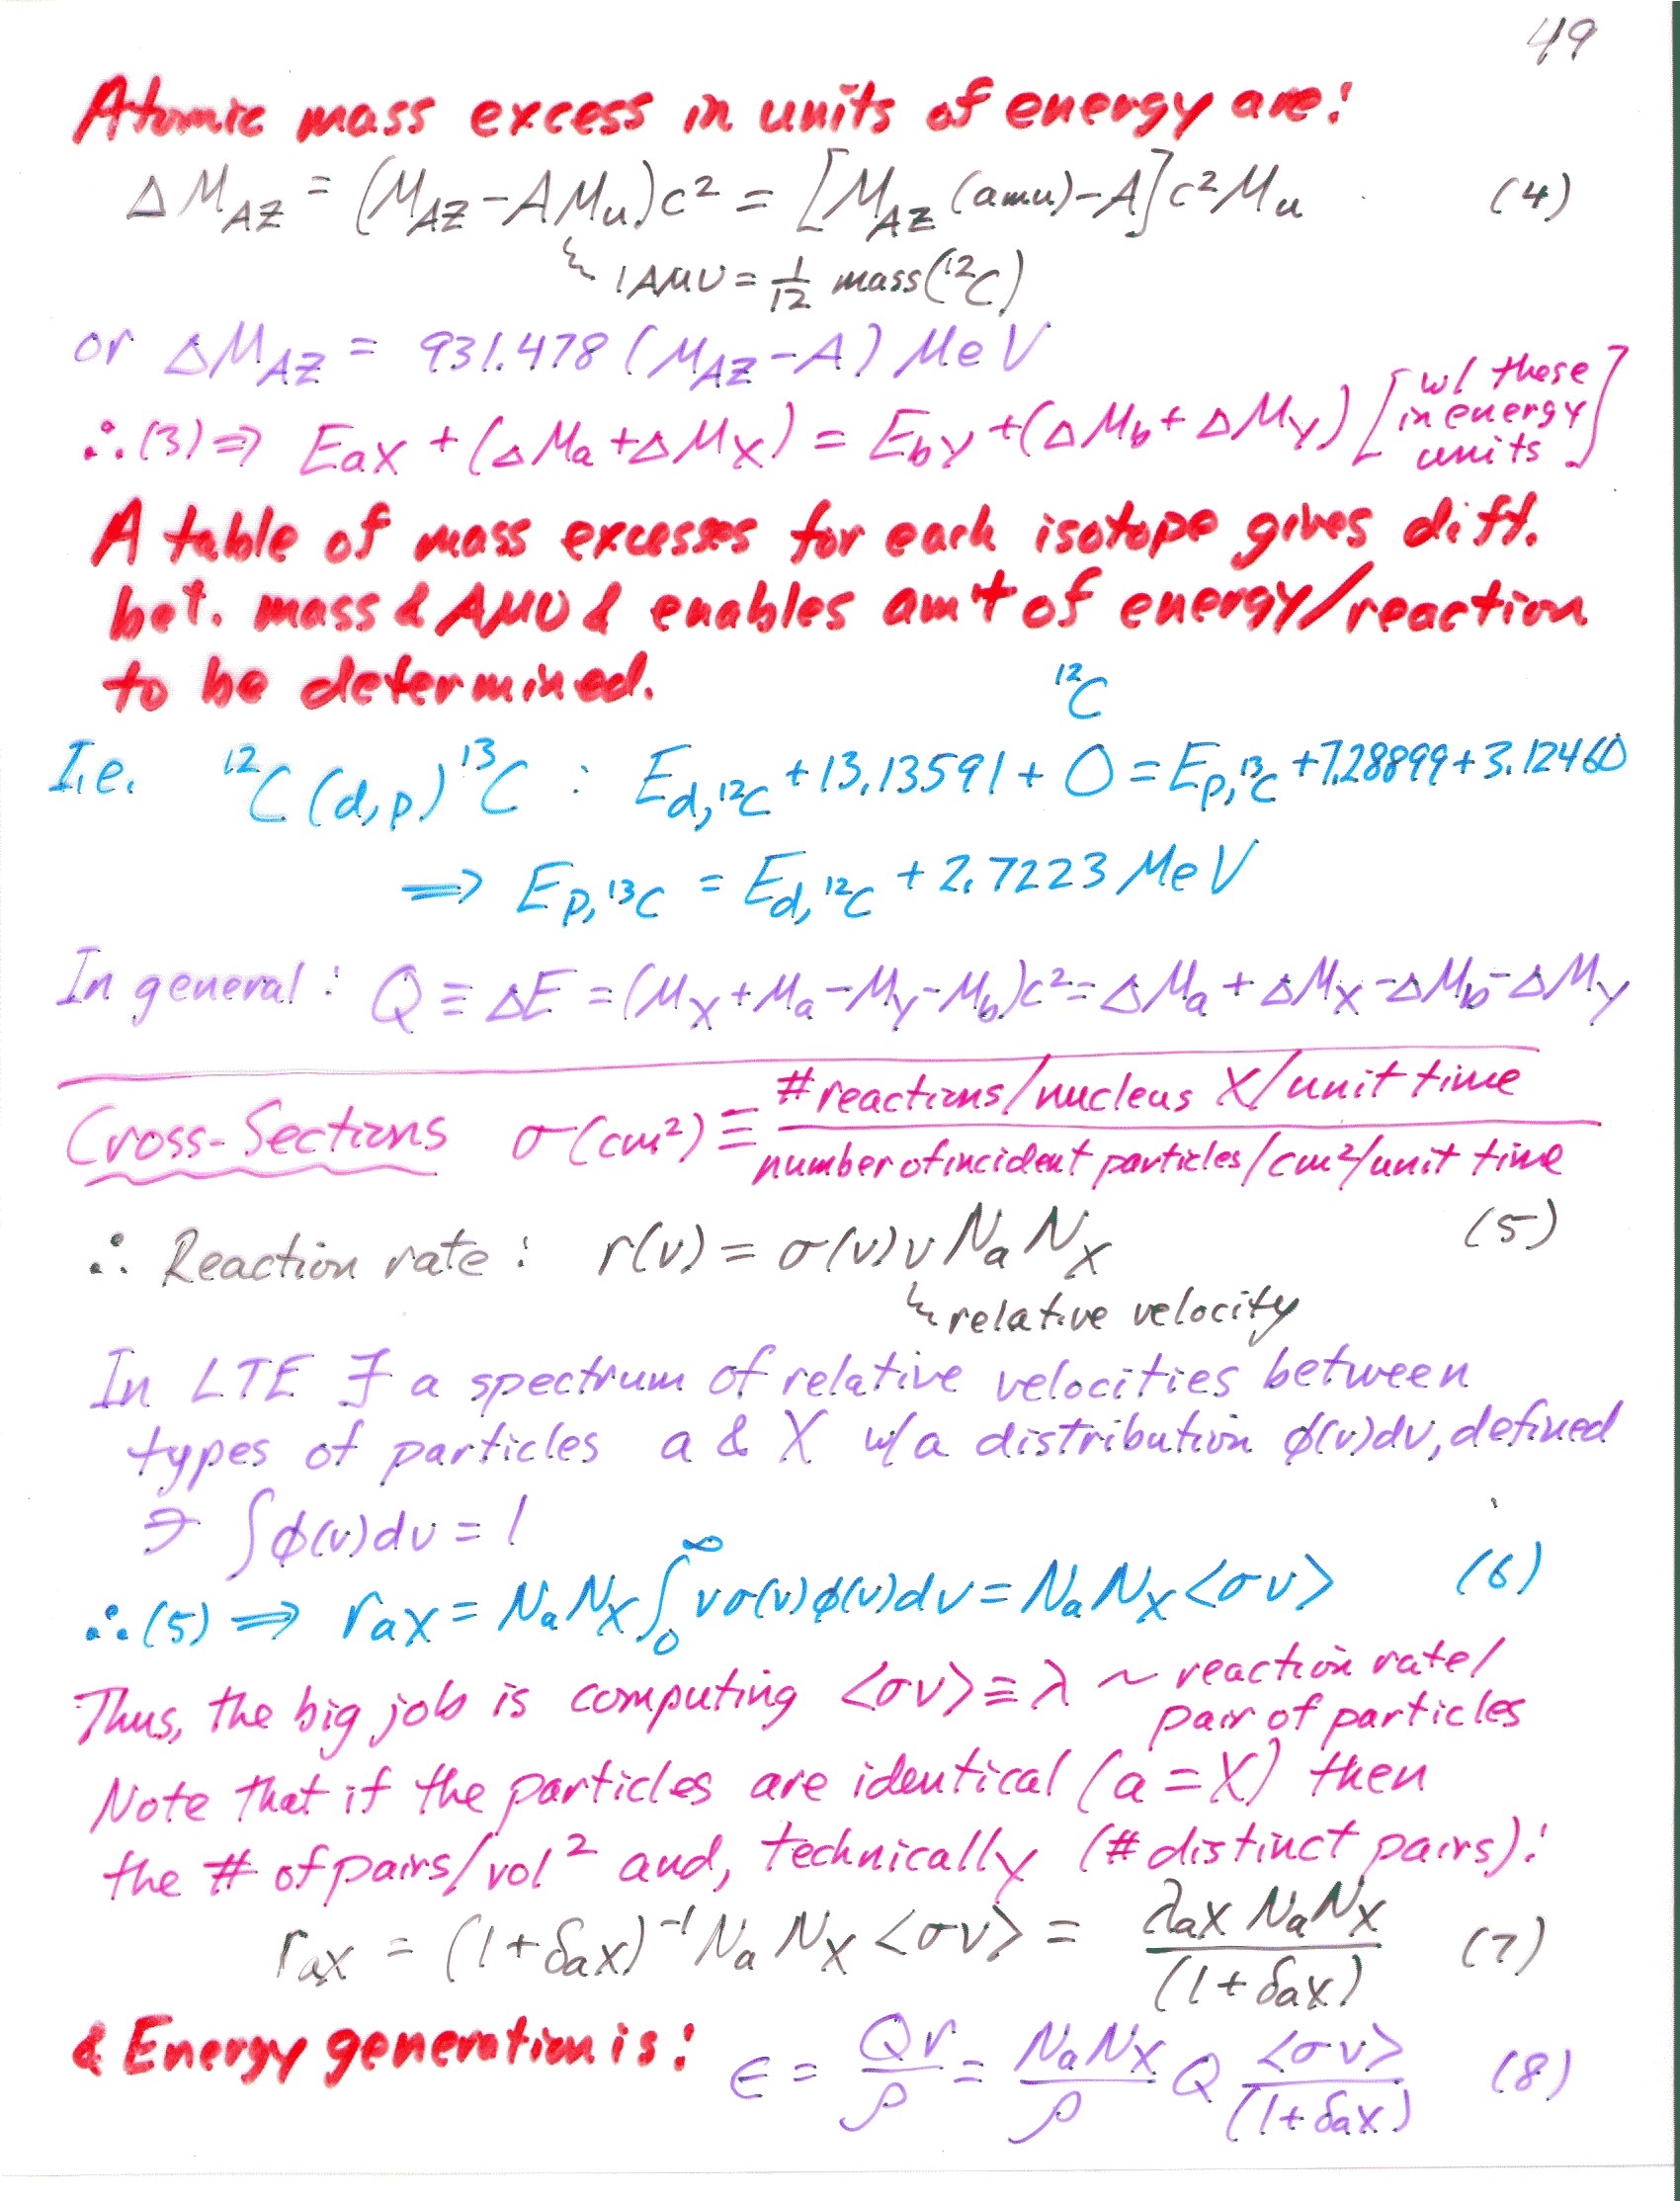 49
Atomic mass excess in units of energy are:
ΔM_AZ = (M_AZ - AM_u)c² = [M_AZ (amu) - A]c²M_u (4)
1 AMU = 1/12 mass(¹²C)
or ΔM_AZ = 931.478 (M_AZ - A) MeV
∴ (3) ⇒ E_aX + (ΔM_a + ΔM_X) = E_bY + (ΔM_b + ΔM_Y) [w/ these in energy units]
A table of mass excesses for each isotope gives diff.
bet. mass & AMU & enables am't of energy/reaction
to be determined.
¹²C
I.e. ¹²C (d,p) ¹³C : E_d,¹²C + 13.13591 + 0 = E_p,¹³C + 7.28899 + 3.12460
⇒ E_p,¹³C = E_d,¹²C + 2.7223 MeV
In general: Q ≡ ΔE = (M_X + M_a - M_Y - M_b)c² = ΔM_a + ΔM_X - ΔM_b - ΔM_Y
Cross-Sections σ(cm²) ≡ # reactions/nucleus X/unit time
number of incident particles/cm²/unit time
∴ Reaction rate: r(v) = σ(v)v N_a N_X (5)
relative velocity
In LTE ∃ a spectrum of relative velocities between
types of particles a & X w/a distribution φ(v)dv, defined
∋ ∫φ(v)dv = 1
∴ (5) ⇒ r_aX = N_a N_X ∫₀^∞ vσ(v)φ(v)dv = N_a N_X <σv> (6)
Thus, the big job is computing <σv> ≡ λ ~ reaction rate/
pair of particles
Note that if the particles are identical (a = X) then
the # of pairs/vol² and, technically (# distinct pairs):
r_aX = (1+δ_aX)⁻¹ N_a N_X <σv> = λ_aX N_a N_X / (1+δ_aX) (7)
& Energy generation is: ϵ = Qr/ρ = N_a N_X/ρ Q <σv>/(1+δ_aX) (8)